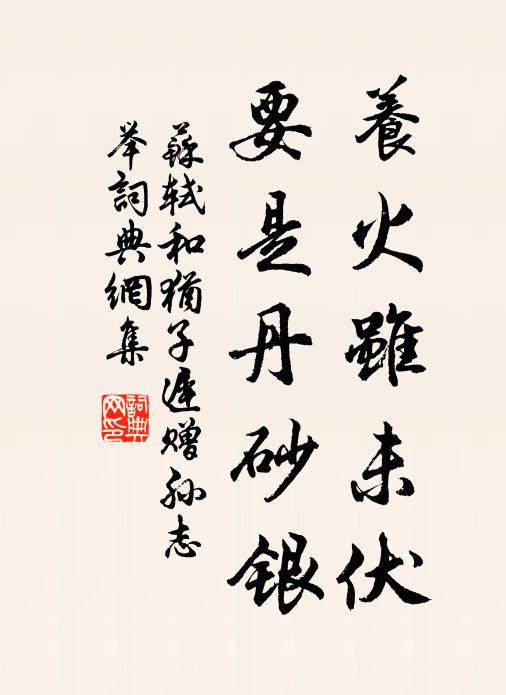 養火雖未伏
要是丹砂銀
蘇軾和猶子遲贈孫志
举詞典網集
詞典
网印